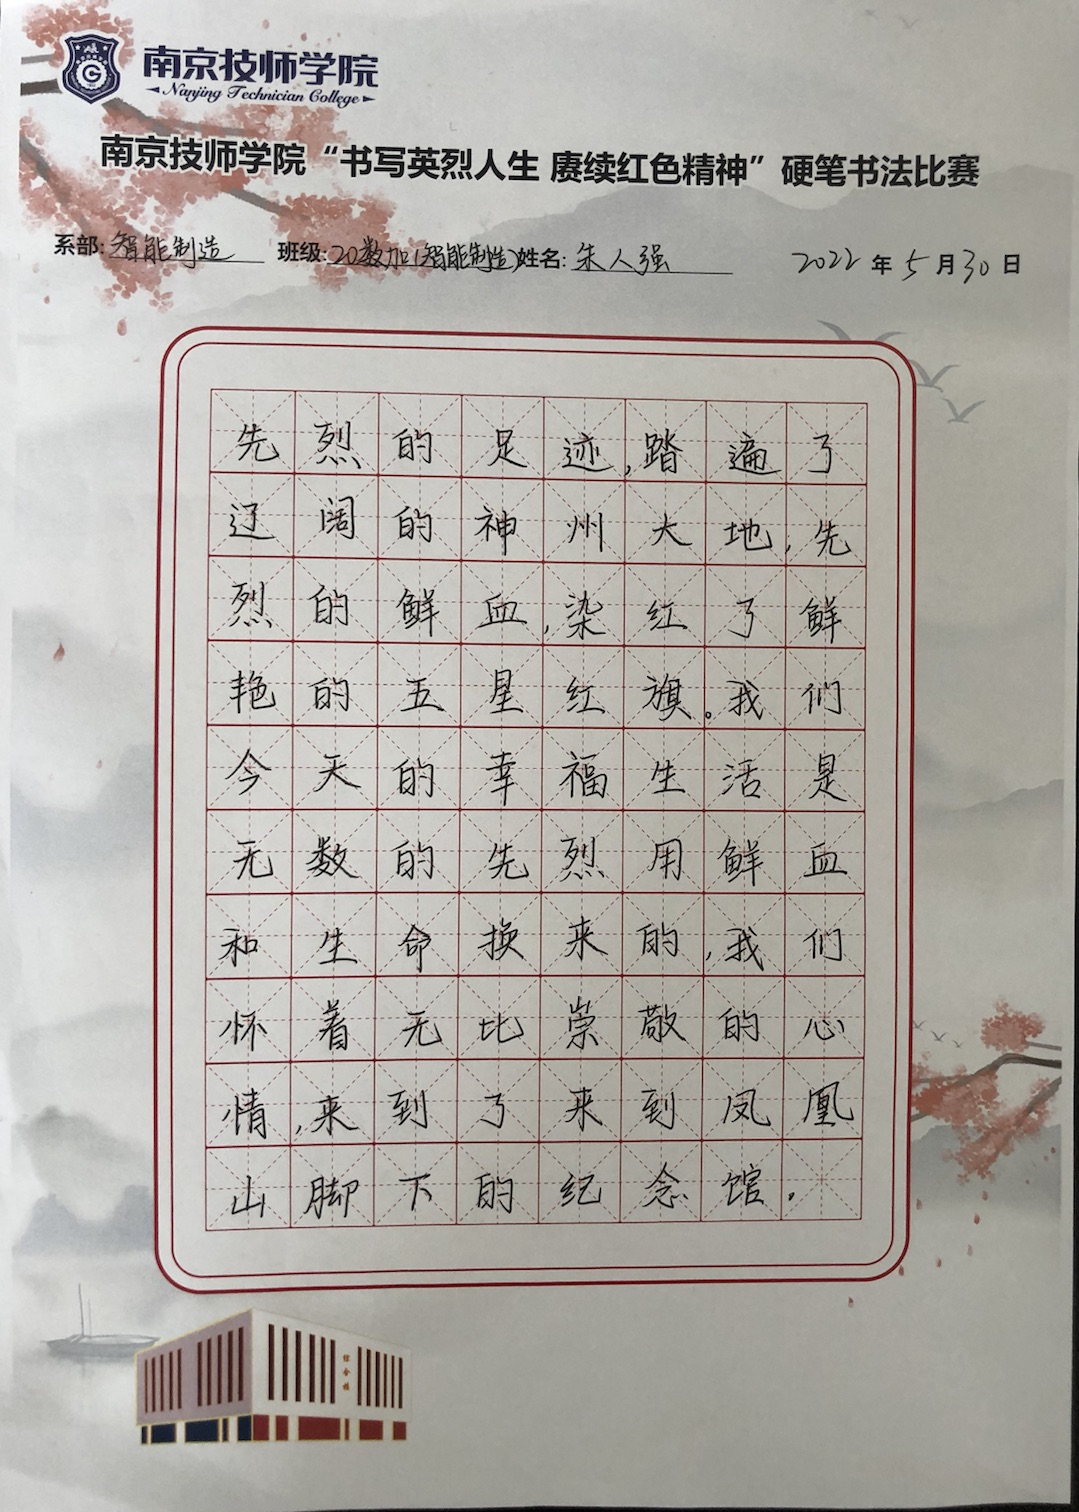 南京技师学院
Nanjing Technician College
南京技师学院“书写英烈人生 赓续红色精神”硬笔书法比赛
系部:智能制造 班级:20数加(智能制造)姓名:朱人强 2022年5月30日
先烈的足迹,踏遍了
辽阔的神州大地,先
烈的鲜血,染红了鲜
艳的五星红旗。我们
今天的幸福生活是
无数的先烈用鲜血
和生命换来的,我们
怀着无比崇敬的心
情,来到了来到凤凰
山脚下的纪念馆.
综合楼